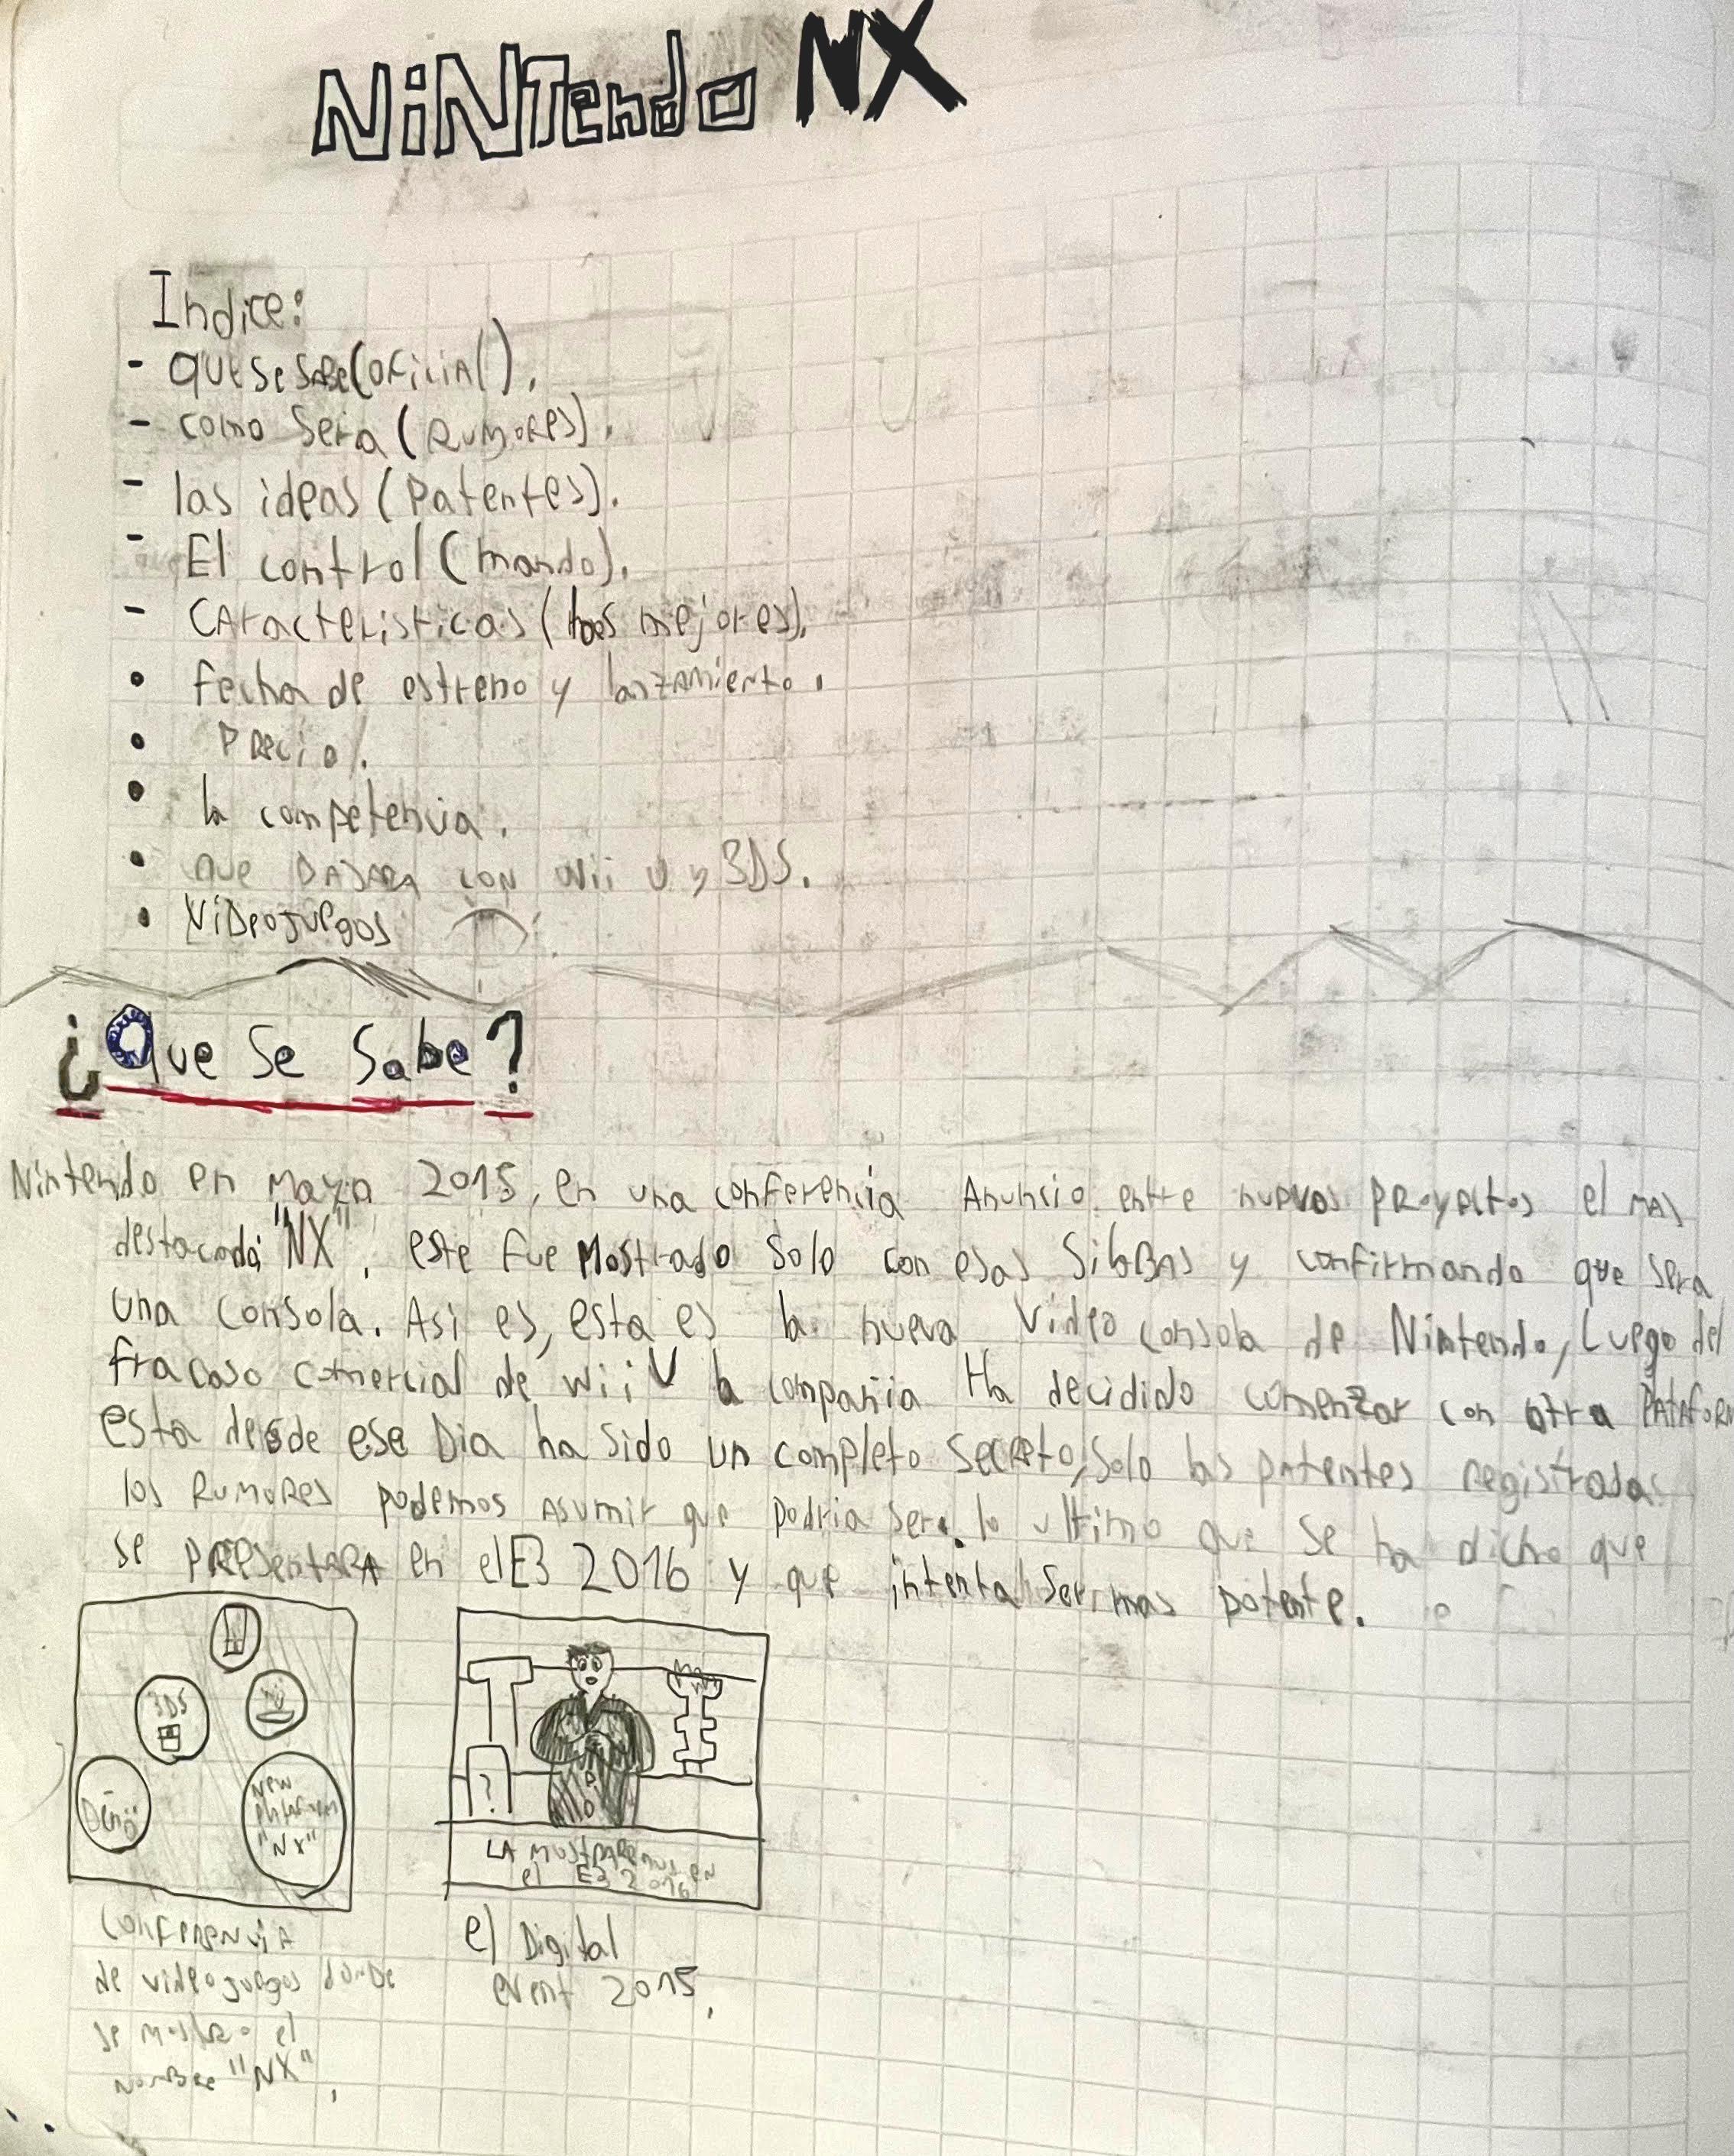 NiNTendo NX
Indice:
- que se sabe (oficial).
- como Sera (Rumores).
- las ideas (Patentes).
- El control (mando).
- CAracteristicas (las mejores).
• fecha de estreno y lanzamiento.
• Precio.
• la competencia.
• que pasara con Wii U y 3DS.
• VIDeojuegos
¿Que Se Sabe?
Nintendo en Mayo 2015, en una conferencia Anuncio entre nuevos proyectos el mas
destacado "NX", este fue Mostrado Solo con esas SilaBas y confirmando que sera
una consola. Asi es, esta es la nueva Video consola de Nintendo, Luego del
fracaso comercial de wii U la compañia Ha decidido comenzar con otra PlataForm
esta desde ese Dia ha sido un completo Secreto, Solo las patentes registradas
los Rumores podemos asumir que podria ser. lo ultimo que se ha dicho que
se presentara en el E3 2016 y que intenta ser mas potente.
3DS
New
platform
"NX"
?
LA mostraremos en
el E3 2016
conferencia
de videojuegos donDe
se mostro el
nomBre "NX",
el Digital
event 2015,